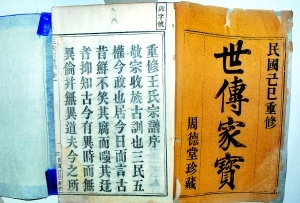 民國己巳重修
世傳家寶
周德堂珍藏
重修王氏宗譜序
敬宗收族古訓也三民五
權今政也居今日而言古
昔鮮不笑其腐而嗤其迂
者抑知古今有異時而無
異倫并無異道夫今之所